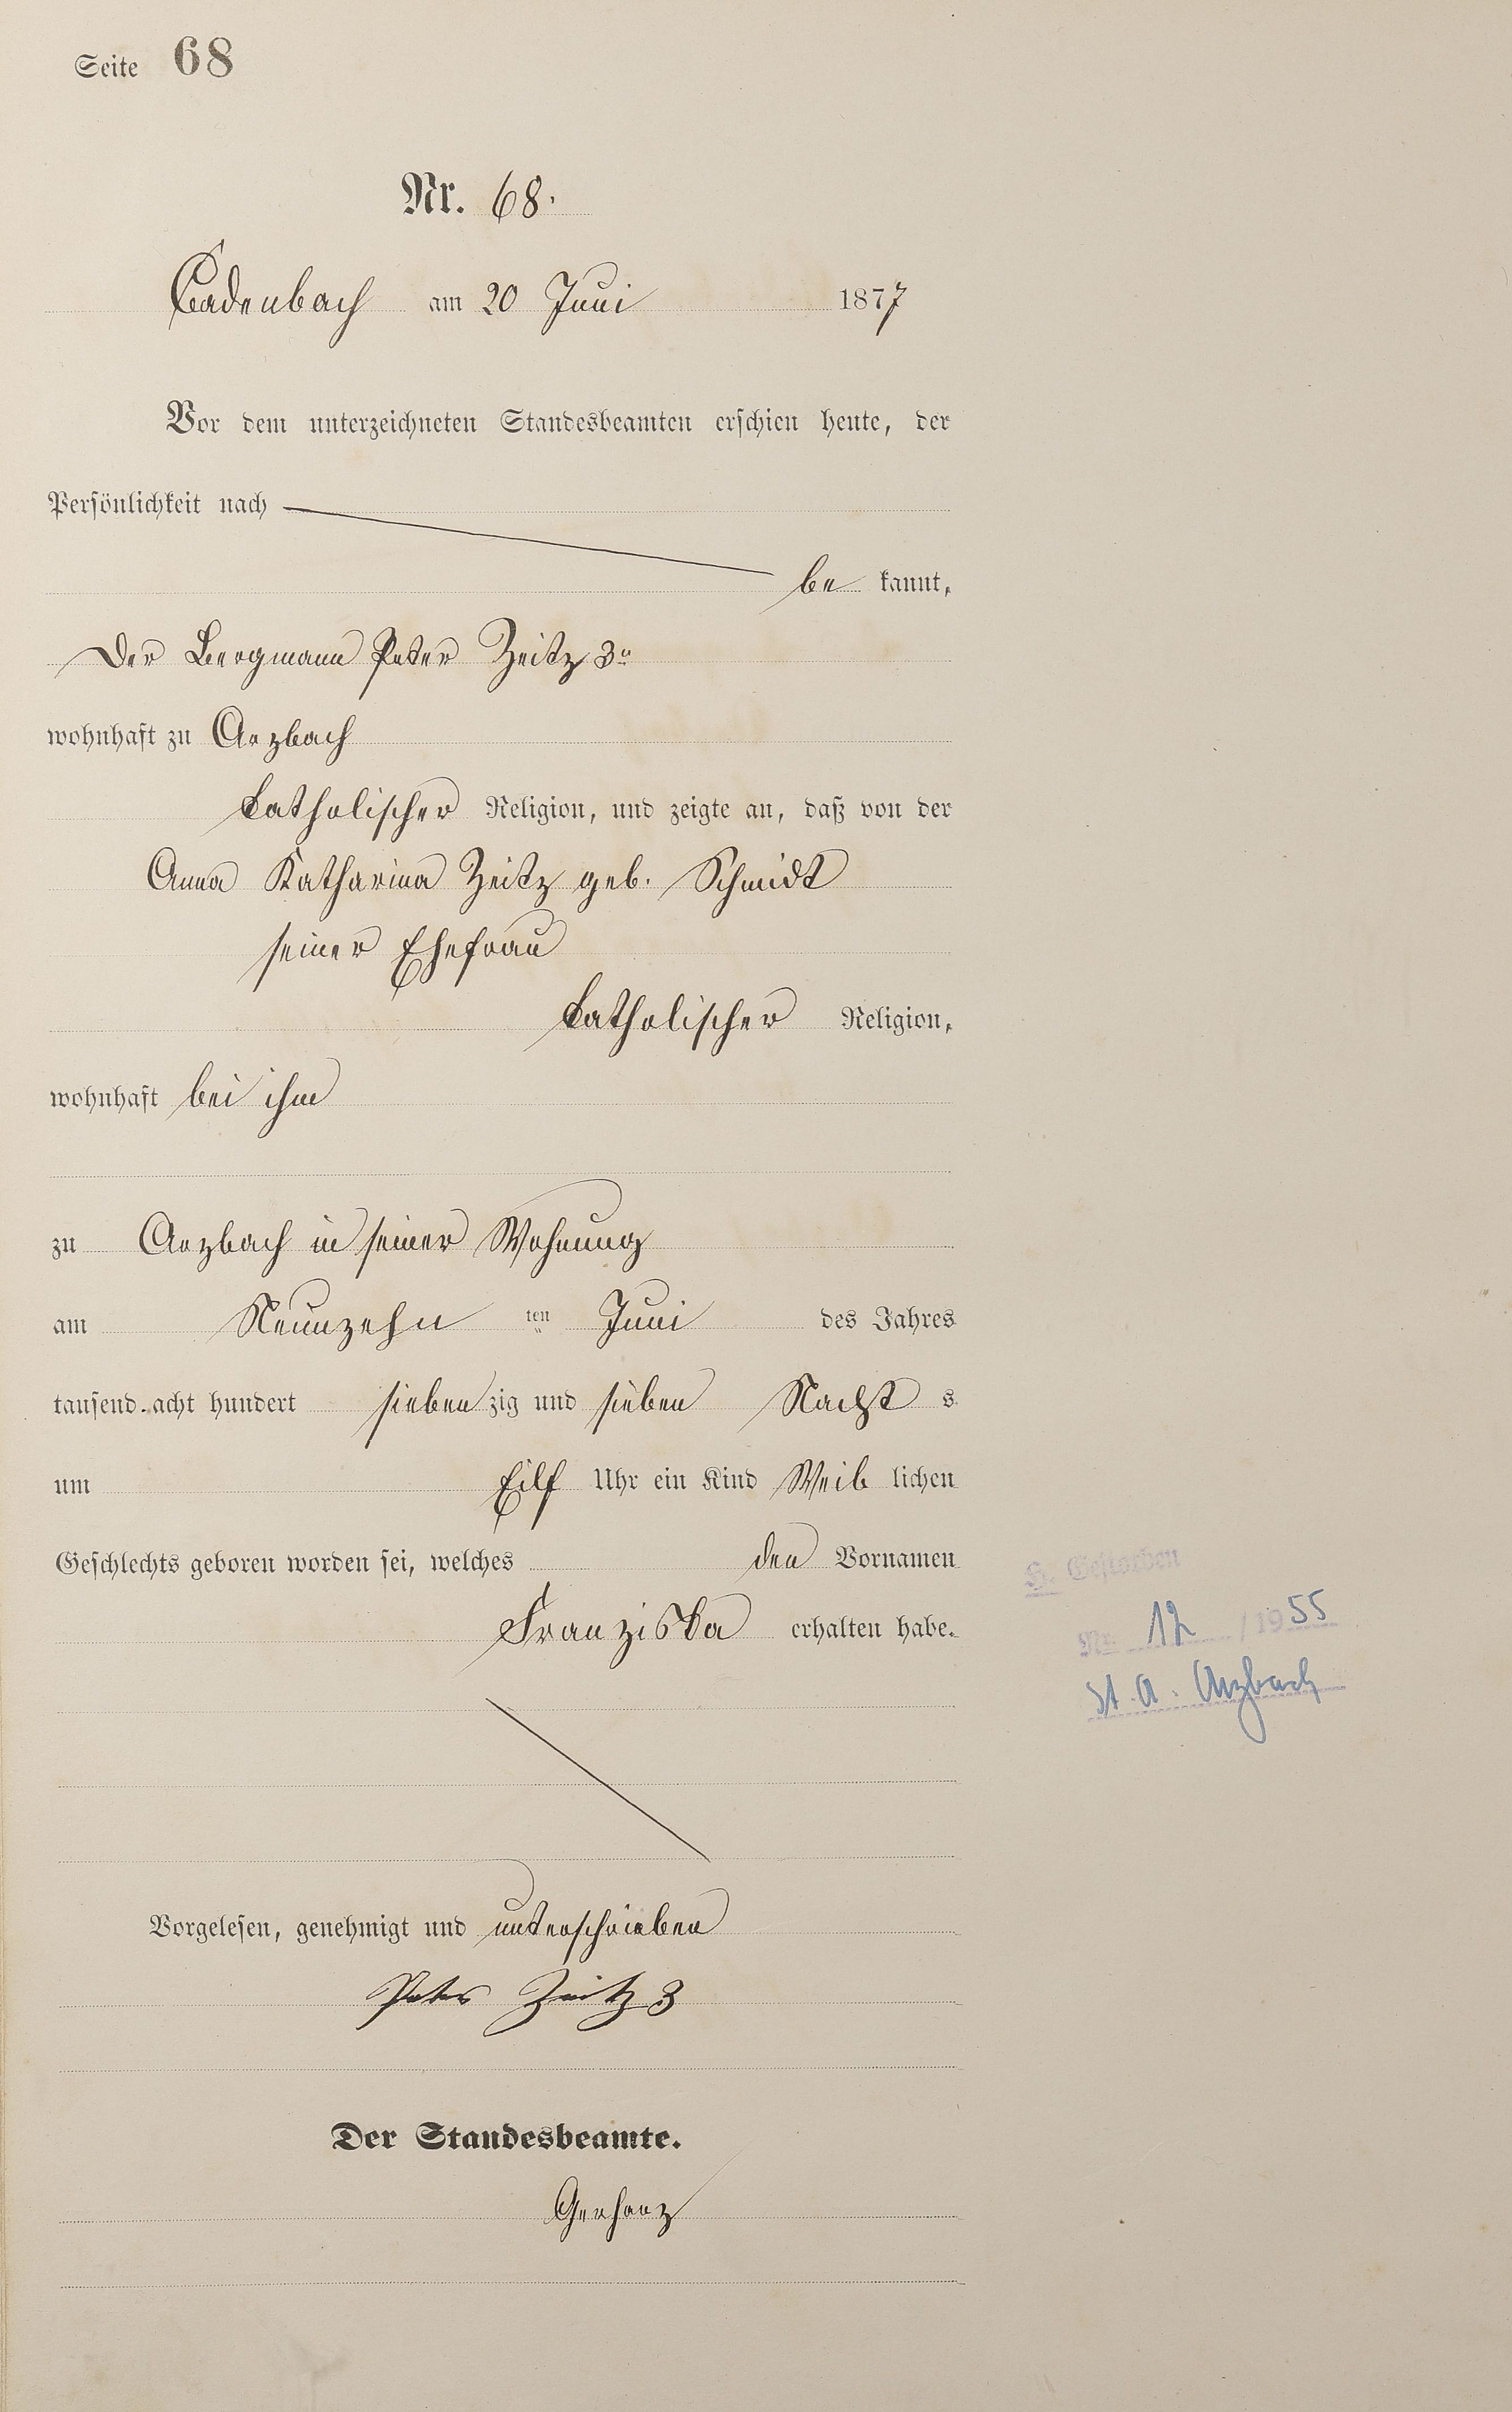 Seite 68
Nr. 68.
Cadenbach am 20 Juni 1877
Vor dem unterzeichneten Standesbeamten erschien heute, der
Persönlichkeit nach
be kannt,
Der Bergmann Peter Zeitz 3r
wohnhaft zu Arzbach
katholischer Religion, und zeigte an, daß von der
Anna Katharina Zeitz geb. Schmidt
seiner Ehefrau
katholischer Religion,
wohnhaft bei ihm
zu Arzbach in seiner Wohnung
am Neunzehn ten Juni des Jahres
tausend acht hundert sieben zig und sieben Nacht s
um Eilf Uhr ein Kind Weib lichen
Geschlechts geboren worden sei, welches den Vornamen
Franziska erhalten habe.
H. Gestorben
Nr. 12 / 1955
St. A. Arzbach
Vorgelesen, genehmigt und unterschrieben
Peter Zeitz 3
Der Standesbeamte.
Gerharz